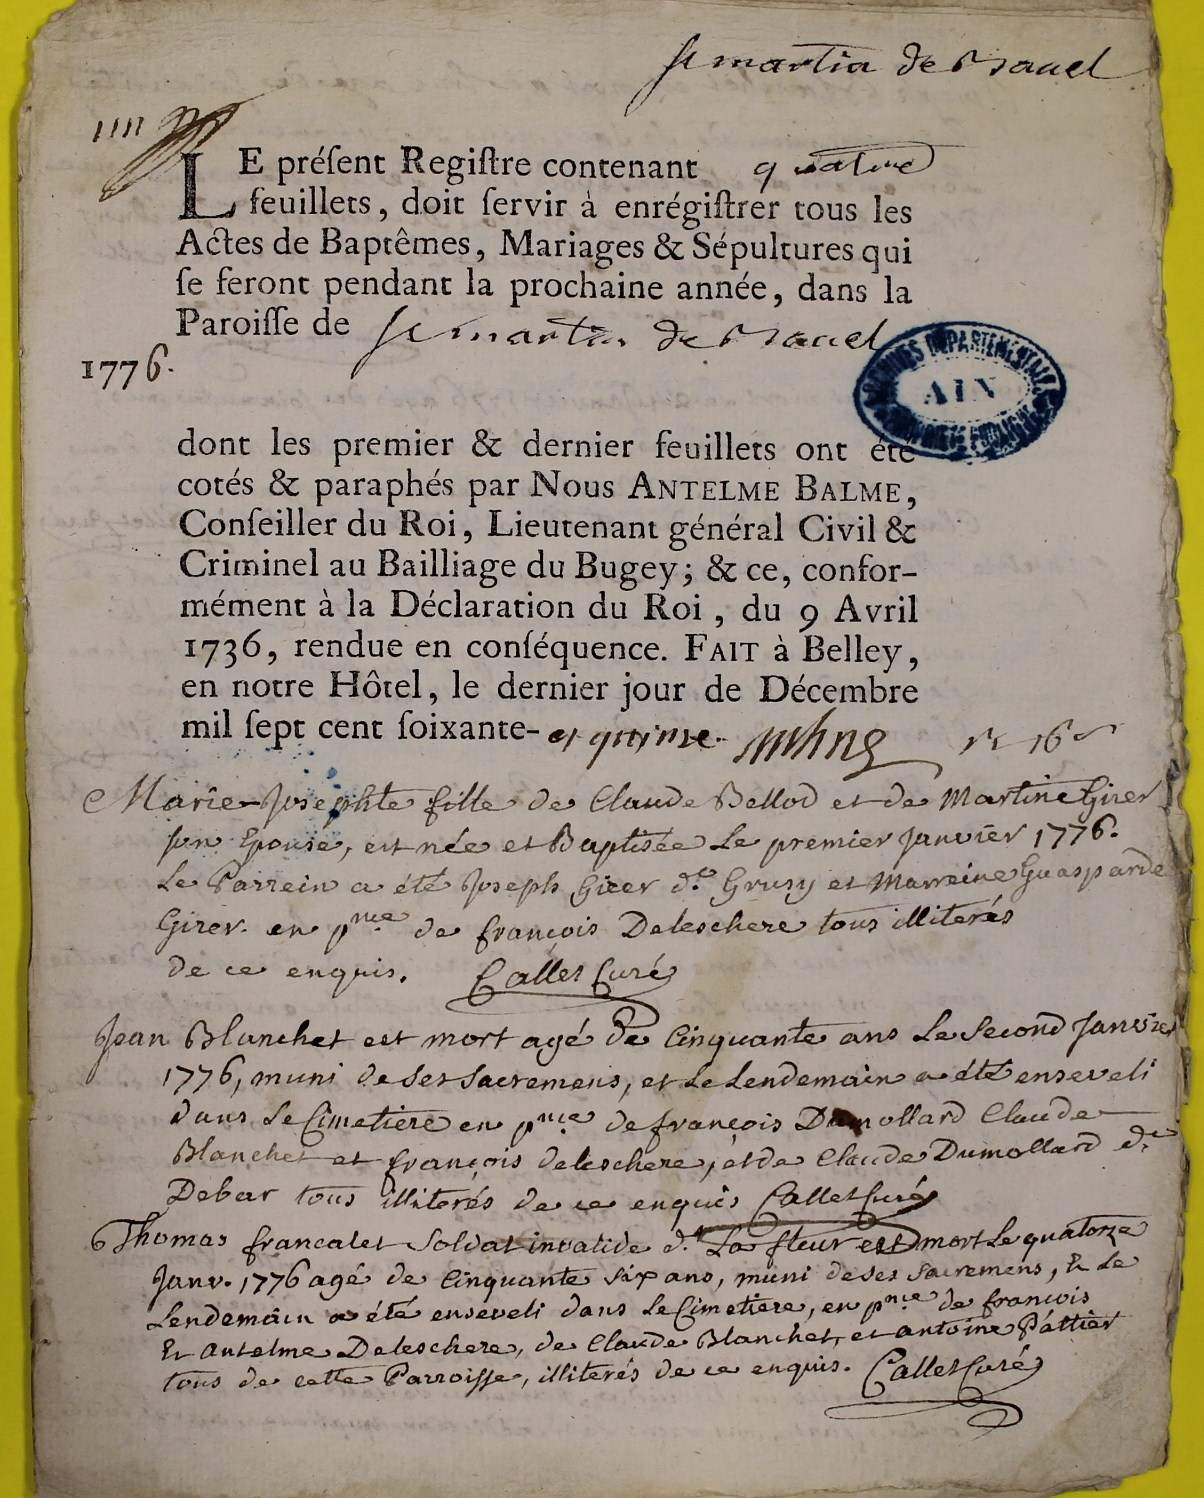 St martin de Bavel
IIII
LE préſent Regiſtre contenant quatre
feuillets, doit ſervir à enrégiſtrer tous les
Actes de Baptêmes, Mariages & Sépultures qui
ſe feront pendant la prochaine année, dans la
Paroiſſe de St martin de Bavel
1776.
ARCHIVES DÉPARTEMENTALES
AIN
dont les premier & dernier feuillets ont été
cotés & paraphés par Nous ANTELME BALME,
Conſeiller du Roi, Lieutenant général Civil &
Criminel au Bailliage du Bugey; & ce, confor-
mément à la Déclaration du Roi, du 9 Avril
1736, rendue en conſéquence. FAIT à Belley,
en notre Hôtel, le dernier jour de Décembre
mil ſept cent ſoixante- et quinze.
Marie-Josephte fille de Claude Bellod et de Martine Girer
son Epouse, est née et Baptisée Le premier Janvier 1776.
Le Parrein a été Joseph Girer d.t Grusy et Marreine Guasparde
Girer. en p.nce de françois Deleschere tous illiterés
de ce enquis. Callet Curé
Jean Blanchet est mort agé de Cinquante ans Le Second Janvier
1776, muni de Ses Sacremens, et Le Lendemain a été enseveli
dans Le Cimetiere en p.nce de françois Dumollard Claude
Blanchet et françois deleschere, et de Claude Dumollard d.t
Debar tous illiterés de ce enquis Callet Curé
Thomas francalet Soldat invalide d.t La fleur est mort Le quatorze
Janv. 1776 agé de Cinquante six ans, muni de Ses Sacremens, Et Le
Lendemain a été enseveli dans Le Cimetiere, en p.nce de françois
Et Antelme Deleschere, de Claude Blanchet, et antoine Pattier
tous de cette Parroisse, illiterés de ce enquis. Callet Curé